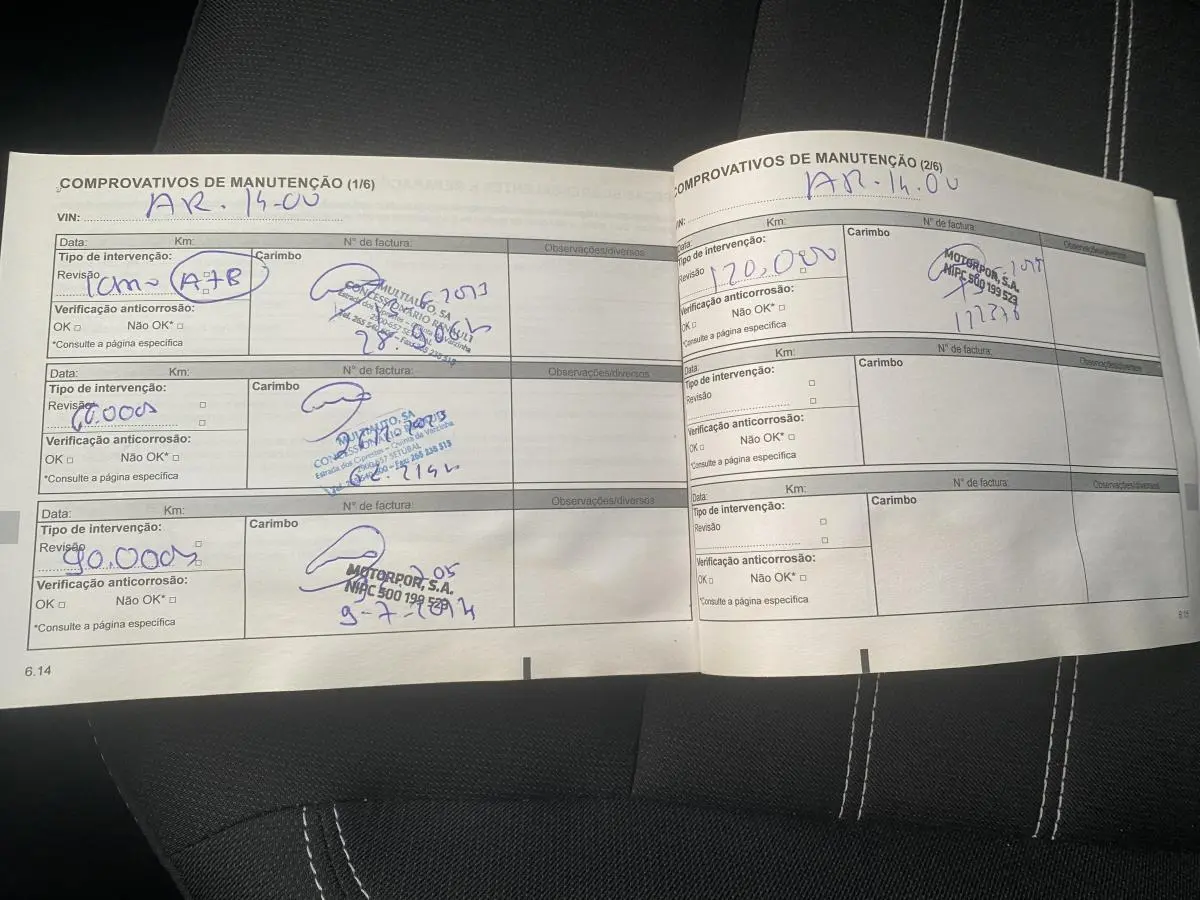 COMPROVATIVOS DE MANUTENÇÃO (1/6)
VIN: AR. 14-00
Data: Km: N° de factura: Observações/diversos
Tipo de intervenção: Carimbo
Revisão A+B
MULTIAUTO, SA
CONCESSIONÁRIO RENAULT
Estrada dos Ciprestes – Quinta da Varzinha
2900-657 SETÚBAL
Verificação anticorrosão:
OK Não OK*
*Consulte a página específica
Data: Km: N° de factura: Observações/diversos
Tipo de intervenção: Carimbo
Revisão
MULTIAUTO, SA
CONCESSIONÁRIO
Estrada dos Ciprestes – Quinta da Varzinha
2900-657 SETÚBAL
Fax: 265 235 515
Verificação anticorrosão:
OK Não OK*
*Consulte a página específica
Data: Km: N° de factura: Observações/diversos
Tipo de intervenção: Carimbo
Revisão 90.000
MOTORPOR, S.A.
NIPC 500 199 523
9-7-2014
Verificação anticorrosão:
OK Não OK*
*Consulte a página específica
6.14
COMPROVATIVOS DE MANUTENÇÃO (2/6)
AR. 14.00
Data: Km: N° de factura: Observações/diversos
Tipo de intervenção: Carimbo
Revisão 120,000
MOTORPOR, S.A.
NIPC 500 199 523
Verificação anticorrosão:
OK Não OK*
*Consulte a página específica
Data: Km: N° de factura: Observações/diversos
Tipo de intervenção: Carimbo
Revisão
Verificação anticorrosão:
OK Não OK*
*Consulte a página específica
Data: Km: N° de factura: Observações/diversos
Tipo de intervenção: Carimbo
Revisão
Verificação anticorrosão:
OK Não OK*
*Consulte a página específica
6.15